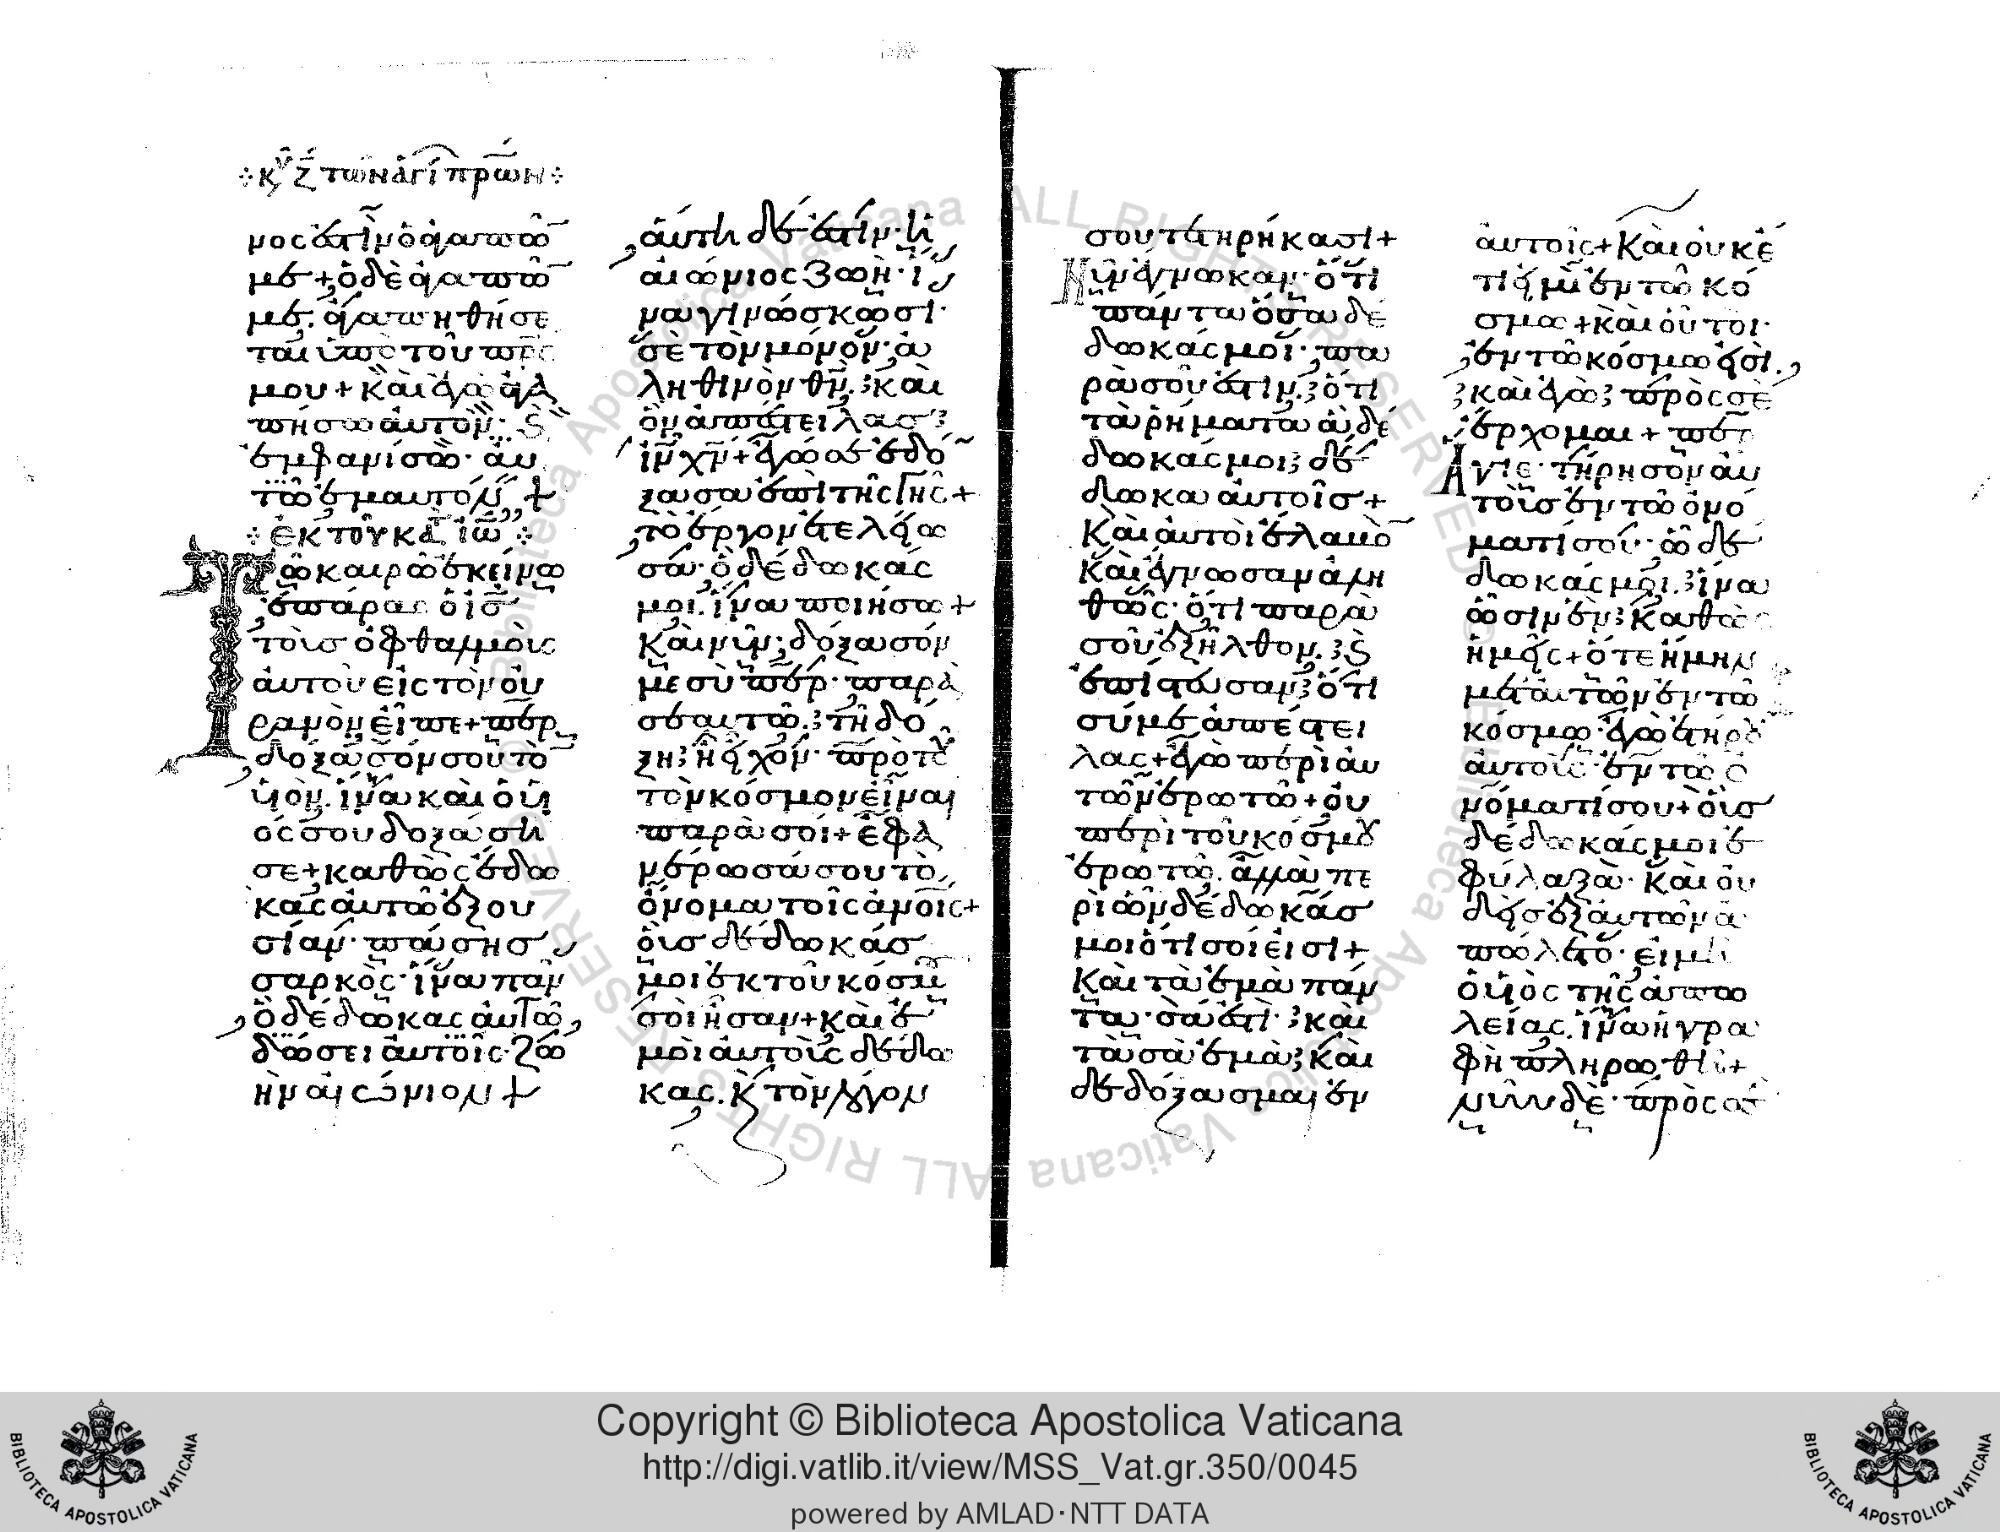 κυ ζ τῶν ἁγί πρων
μος ἐστὶν ὁ ἀγαπῶ
με + ὁ δὲ ἀγαπῶ
με. ἀγαπηθήσε
ται ὑπὸ τοῦ πρς
μου + καὶ ἐγὼ ἀγα
πήσω αὐτὸν· καὶ
ἐμφανίσω· αὐ
τῶ ἐμαυτόν +
ἐκ τοῦ κατ ἰω
Τῶ καιρῶ ἐκείνω
ἐπάρας ὁ ις
τοὺς ὀφθαλμοὺς
αὐτοῦ εἰς τὸν οὐ
ρανὸν εἶπε + περ
δόξασόν σου τὸ
υἱόν. ἵνα καὶ ὁ υἱ
ός σου δοξάση
σε + καθὼς ἔδω
κας αὐτῶ ἐξου
σίαν· πάσης
σαρκὸς· ἵνα πᾶν
ὃ δέδωκας αὐτῶ,
δώσει αὐτοῖς· ζωὴ
ην αἰώνιον +
αὕτη δέ ἐστιν· ἡ
αἰώνιος ζωὴ· ἵ
να γινώσκωσί·
σε τὸν μόνον· ἀ
ληθινὸν θν. καὶ
ὃν ἀπέστειλας
ιν χν + ἐγώ σε ἐδό
ξασα ἐπὶ τῆς γῆς +
τὸ ἔργον ἐτελείω
σα· ὃ δέδωκάς
μοι. ἵνα ποιήσω +
Καὶ νῦν; δόξασόν
με σὺ περ· παρὰ
σεαυτῶ. τῆ δό
ξη ἧ εἶχον· πρὸ τοῦ
τὸν κόσμον εἶναι
παρὰ σοί + ἐφα
νέρωσά σου τὸ
ὄνομα τοῖς ἀνοις +
οὓς δέδωκάς
μοι ἐκ τοῦ κόσμου
σοὶ ἦσαν + καὶ ἐ
μοὶ αὐτοὺς δέδω
κας. καὶ τὸν λόγον
σου τετηρήκασι +
Νῦν ἔγνωκαν· ὅτι
πάντα ὅσα δέ
δωκάς μοι· πα
ρὰ σοῦ ἐστιν. ὅτι
τὰ ῥήματα ἃ δέ
δωκάς μοι δέ
δωκα αὐτοῖς +
Καὶ αὐτοὶ ἔλαβο
Καὶ ἔγνωσαν ἀλη
θῶς· ὅτι παρὰ
σοῦ ἐξῆλθον. καὶ
ἐπίστευσαν ὅτι
σύ με ἀπέστει
λας + ἐγὼ περὶ αὐ
τῶν ἐρωτῶ + οὐ
περὶ τοῦ κόσμου
ἐρωτῶ. ἀλλὰ πε
ρὶ ὧν δέδωκάς
μοι ὅτι σοί εἰσι +
Καὶ τὰ ἐμὰ πάν
τα· σά ἐστι· καὶ
τὰ σὰ ἐμὰ καὶ
δεδόξασμαι ἐν
αὐτοῖς + Καὶ οὐκέ
τι εἰμὶ ἐν τῶ κό
σμω + καὶ οὗτοι·
ἐν τῶ κόσμω εἰσὶ.
καὶ ἐγὼ πρὸς σὲ
ἔρχομαι + περ
Ἅγιε· τήρησον αὐ
τοὺς ἐν τῶ ὀνό
ματί σου· ὧ δέ
δωκάς μοι. ἵνα
ὦσιν ἓν καθὼς
ἡμεῖς + ὅτε ἤμην
μετ αὐτῶν ἐν τῶ
κόσμω· ἐγὼ ἐτήρου
αὐτοὺς ἐν τῶ ὀ
νόματί σου + οὓς
δέδωκάς μοι ἐ
φύλαξα· Καὶ οὐ
δεὶς ἐξ αὐτῶν ἀ
πώλετο· εἰ μὴ
ὁ υἱὸς τῆς ἀπω
λείας. ἵνα ἡ γρα
φὴ πληρωθῆ +
νῦν δὲ· πρὸς σὲ
Copyright © Biblioteca Apostolica Vaticana
http://digi.vatlib.it/view/MSS_Vat.gr.350/0045
powered by AMLAD·NTT DATA
BIBLIOTECA APOSTOLICA VATICANA
BIBLIOTECA APOSTOLICA VATICANA